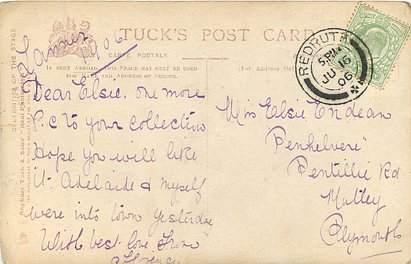 TUCK'S POST CARD
CARTE POSTALE
Is not Abroad this Space may only be used
for Name and Address of Sender.
For Address Only
REDRUTH
5 PM
JU 16
06
1906
Dear Elsie. One more
P.C to your collection
Hope you will like
it. Adelaide & myself
were into town yesterday
With best love from
Florence
Miss Elsie Endean
"Penhelvere"
Pentillie Rd
Mutley
Plymouth
CELEBRITIES OF THE STAGE